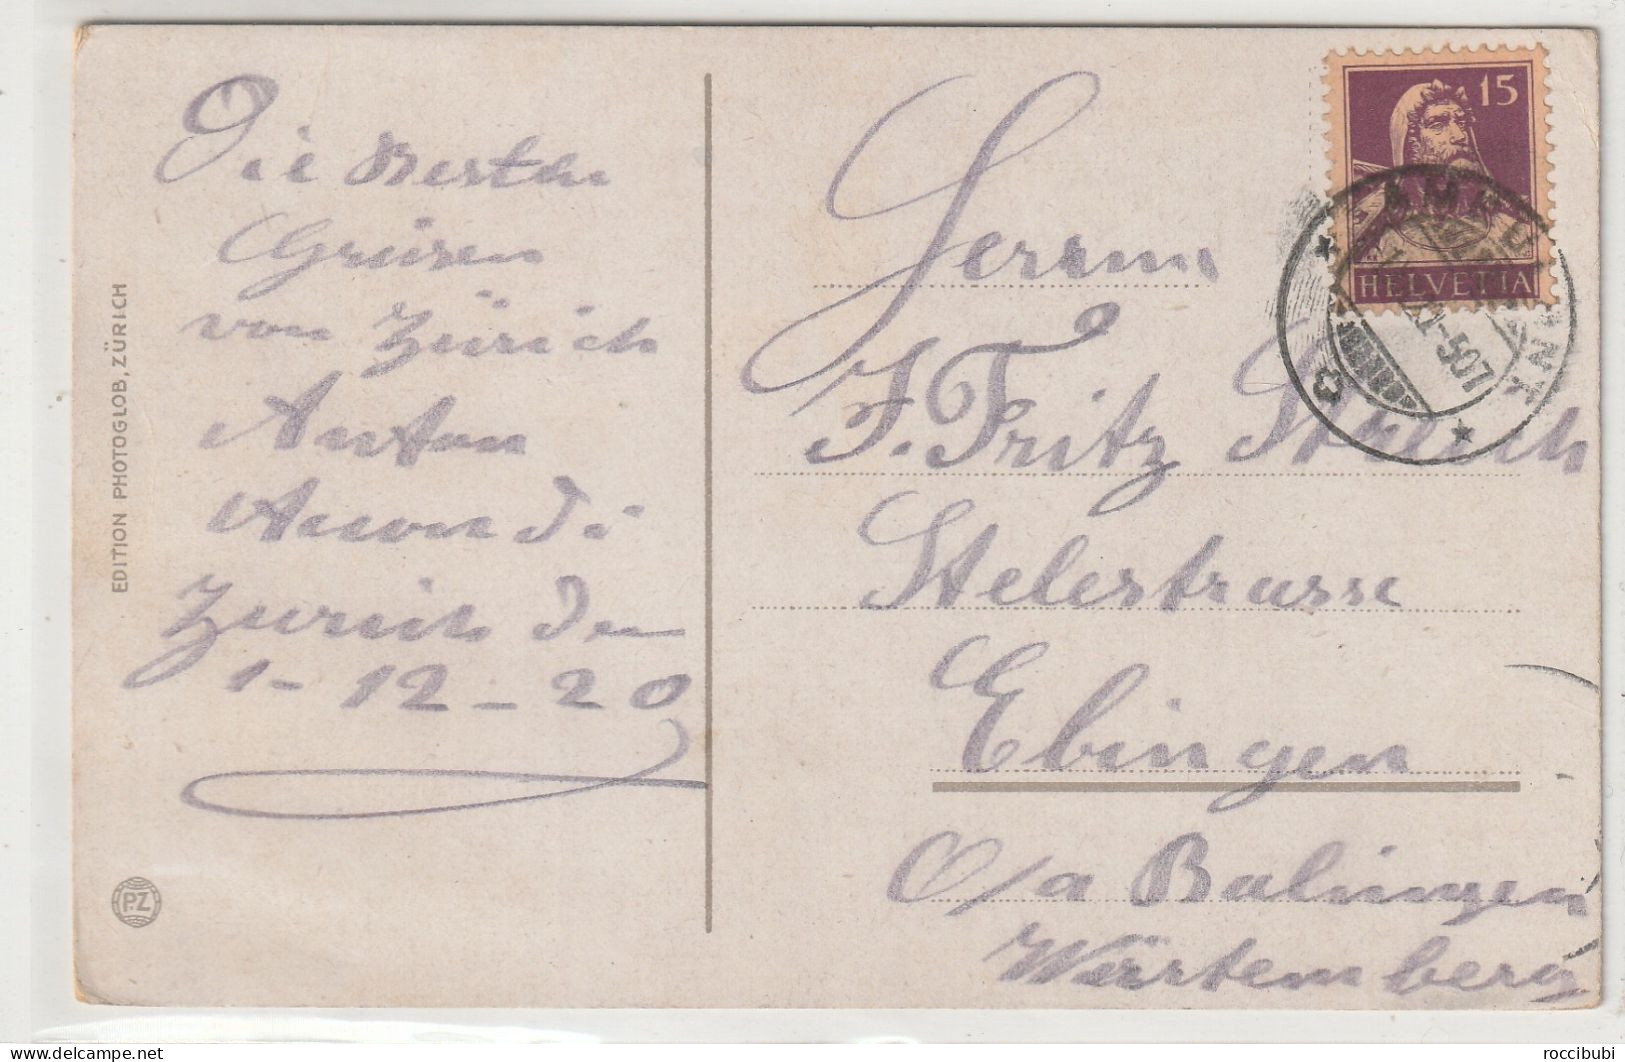 Die Besten
Grüsen
von Zürich
Anton
Zürich Den
1-12-20
EDITION PHOTOGLOB, ZÜRICH
P.Z
Herrn
J. Fritz
Stelestrasse
Ebingen
O/a Balingen
Würtemberg
15
HELVETIA
roccibubi